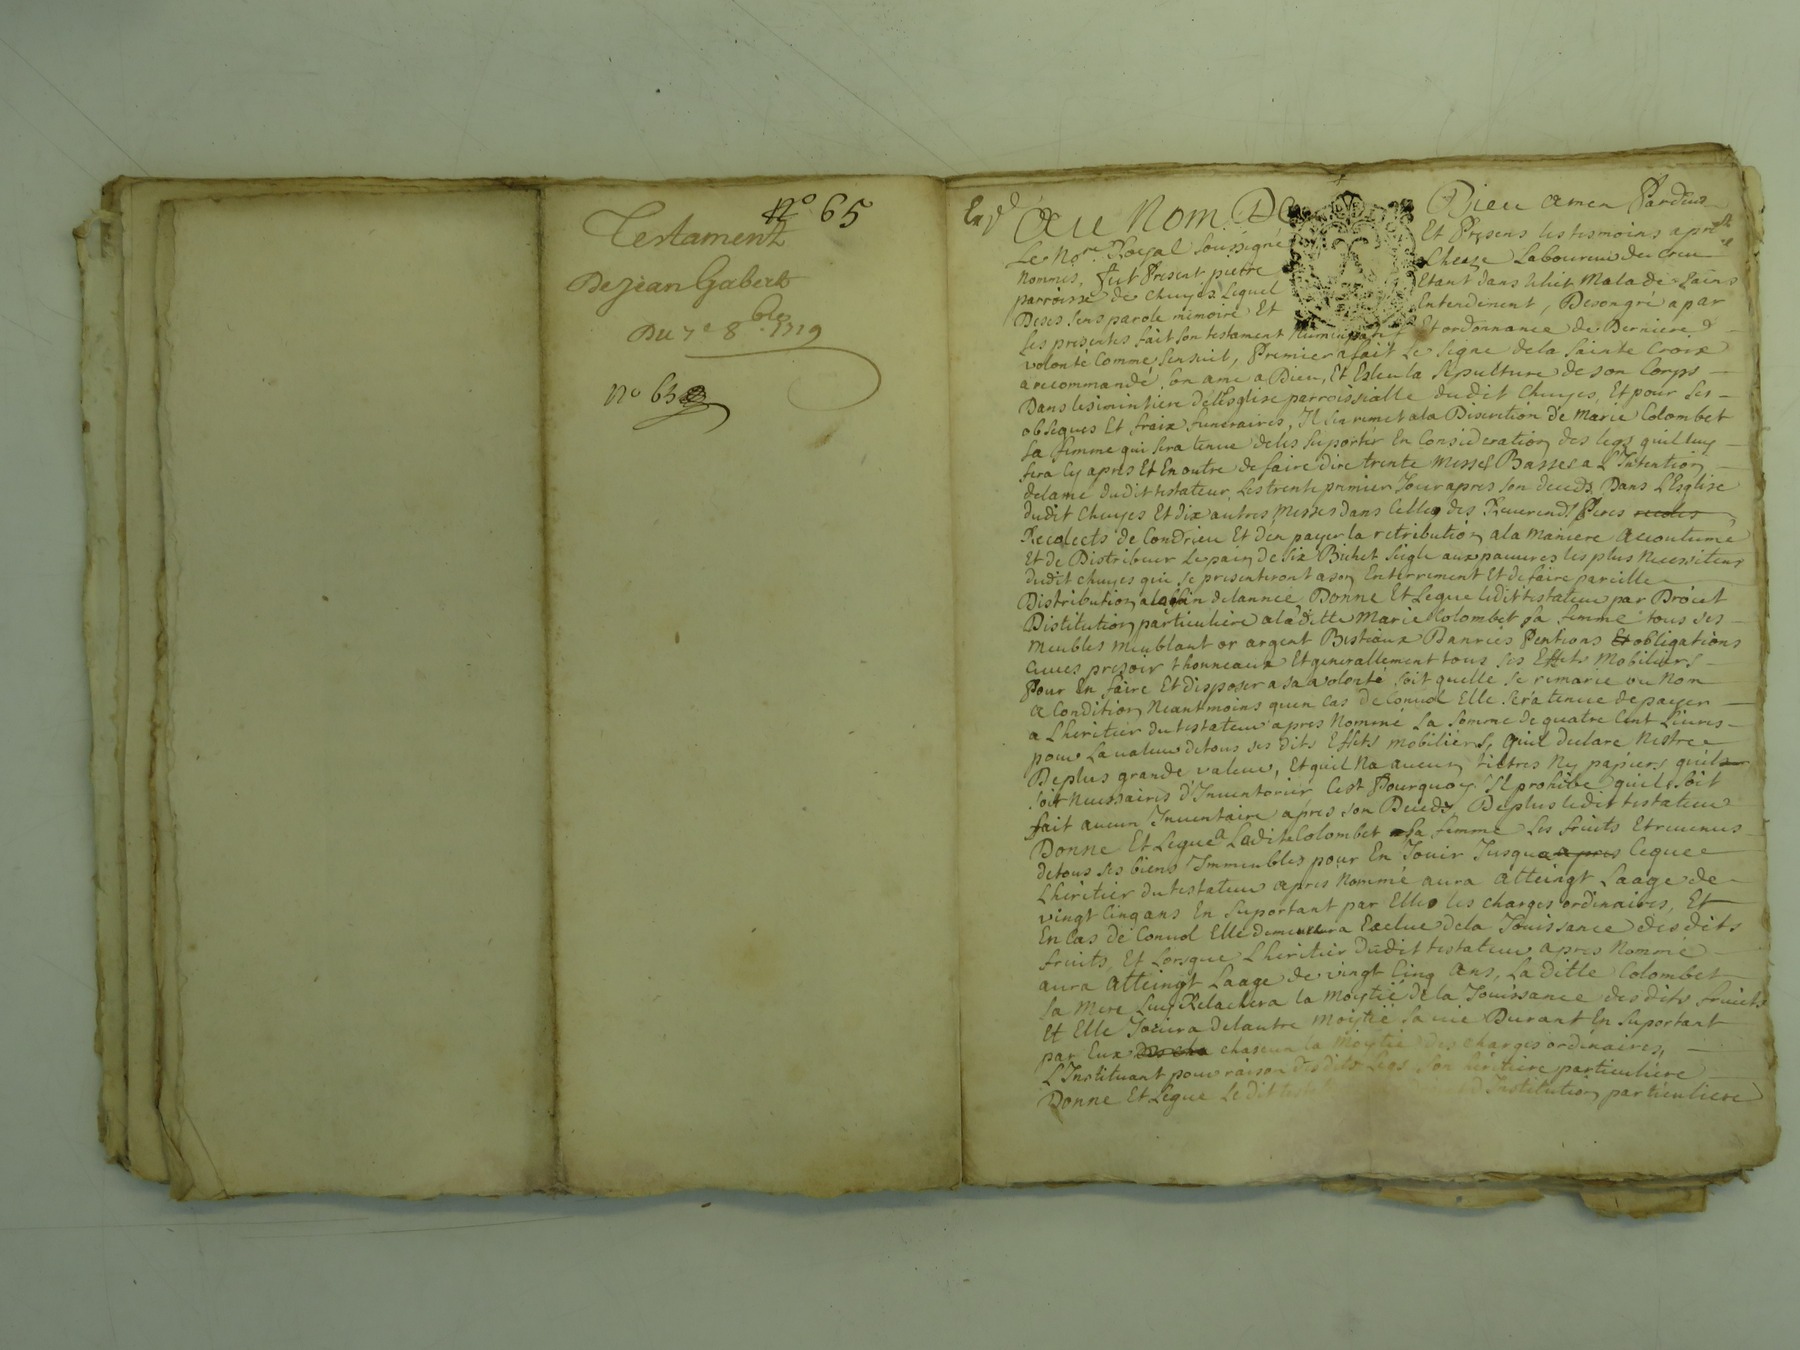 N° 65
Testament
De Jean Gabert
Du 7e 8bre 1719
N° 65
Au Nom De Dieu amen Pardevt
Le Nore Royal Soussigné Et Presens les tesmoins apres
Nommés, fut Present pierre Cheize Laboureur du Creu
parroisse de Chuyes Lequel Etant dans Le lit Malade Sains
De ses sens parole mémoire Et Entendement, De son gré a par
Les presentes fait son testament Et ordonnance de Derniere
volonté Comme sensuit, Premier a fait Le signe de la Sainte Croix
a recommandé son ame a Dieu, Et Esleu la sepulture de son Corps
Dans le simintiere de l'Esglise parroissialle dudit Chuyes, Et pour ses
obseques Et fraix funeraires, Il sen remet a la Discretion de Marie Colombet
sa femme qui sera tenue de les suporter En Consideration des legs quil luy
fera Cy apres Et En outre de faire dire trente Messes Basses a L'Intention
de lame dudit testateur, Les trente premier Jour apres son deceds, Dans L'Esglise
dudit Chuyes Et dix autres Messes dans Celle des Reverends Peres
Recolects de Condrieu Et den payer la retribution a la maniere accoutumé
Et de Distribuer Le pain de six Bichet seigle aux pauvres les plus necessiteux
dudit chuyes qui se presenteront a son Enterrement Et de faire pareille
Distribution a la fin de lannee, Donne Et Legue ledit testateur par Droict
Distitution particuliere a la ditte Marie Colombet sa femme tous ses
meubles meublant or argent Bestiaux Danrées Pentions Et obligations
Cuves presoir thonneaux Et generallement tous ses Effets Mobiliers
Pour En faire Et disposer a sa volonté soit quelle se remarie ou Non
a Condition Neantmoins quen Cas de Convol Elle sera tenue de payer
a Lheritier du testateur apres Nommé La somme de quatre Cent Livres
pour La valeur de tous ses dits Effets mobiliers, quil declare Nestre
De plus grande valeur, Et quil Na aucun tiltres Ny papiers quil
soit necessaires d'Inventorier Cest Pourquoy Il prohibe quil soit
fait aucun Inventaire apres son Deceds, De plus ledit testateur
Donne Et Legue a Ladite Colombet sa femme Les fruits Et revenus
de tous ses biens Immeubles pour En Jouir Jusqua apres Ceque
Lheritier du testateur apres Nommé aura atteingt Laage de
vingt Cinq ans En suportant par Elle les charges ordinaires, Et
En Cas de Convol Elle demeurera Exclue de la Jouissance des dits
fruits, Et Lorsque Lheritier dudit testateur apres Nommé
aura atteingt Laage de vingt Cinq ans, La ditte Colombet
sa Mere Luy Relachera la moytié de la Jouissance des dits fruicts
Et Elle Jouira de lautre moytié sa vie Durant En suportant
par Eux chascun la moytié des charges ordinaires,
L'Instituant pour raison des dits Legs son héritiere particuliere
Donne Et Legue Le dit Institution particuliere